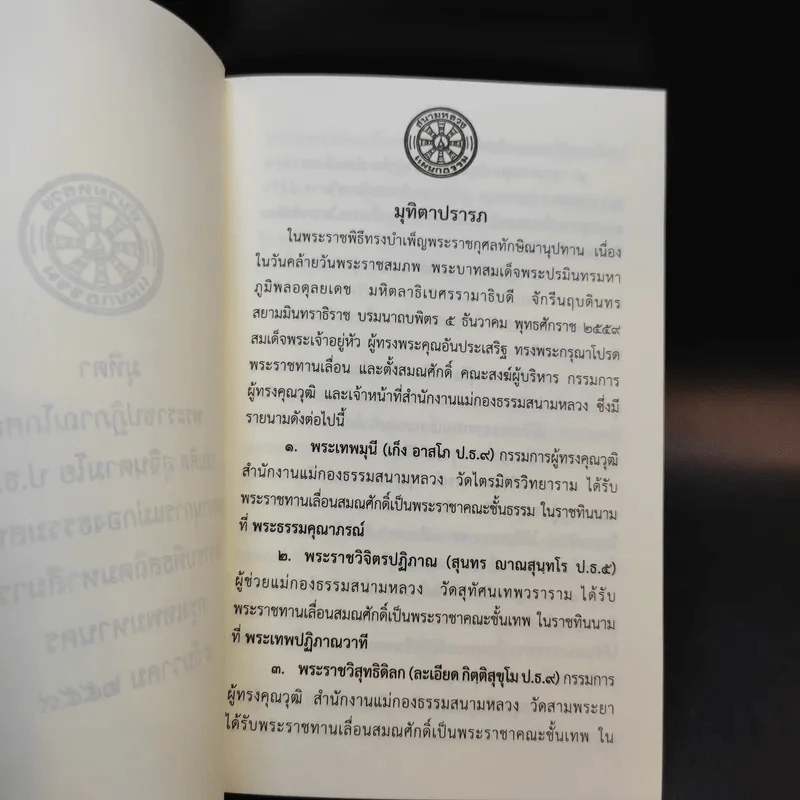 สนามหลวง
แผนกธรรม
มุทิตาปรารภ
ในพระราชพิธีทรงบำเพ็ญพระราชกุศลทักษิณานุปทาน เนื่อง
ในวันคล้ายวันพระราชสมภพ พระบาทสมเด็จพระปรมินทรมหา
ภูมิพลอดุลยเดช มหิตลาธิเบศรรามาธิบดี จักรีนฤบดินทร
สยามมินทราธิราช บรมนาถบพิตร ๕ ธันวาคม พุทธศักราช ๒๕๕๙
สมเด็จพระเจ้าอยู่หัว ผู้ทรงพระคุณอันประเสริฐ ทรงพระกรุณาโปรด
พระราชทานเลื่อน และตั้งสมณศักดิ์ คณะสงฆ์ผู้บริหาร กรรมการ
ผู้ทรงคุณวุฒิ และเจ้าหน้าที่สำนักงานแม่กองธรรมสนามหลวง ซึ่งมี
รายนามดังต่อไปนี้
๑. พระเทพมุนี (เก็ง อาสโภ ป.ธ.๙) กรรมการผู้ทรงคุณวุฒิ
สำนักงานแม่กองธรรมสนามหลวง วัดไตรมิตรวิทยาราม ได้รับ
พระราชทานเลื่อนสมณศักดิ์เป็นพระราชาคณะชั้นธรรม ในราชทินนาม
ที่ พระธรรมคุณาภรณ์
๒. พระราชวิจิตรปฏิภาณ (สุนทร ญาณสุนฺทโร ป.ธ.๕)
ผู้ช่วยแม่กองธรรมสนามหลวง วัดสุทัศนเทพวราราม ได้รับ
พระราชทานเลื่อนสมณศักดิ์เป็นพระราชาคณะชั้นเทพ ในราชทินนาม
ที่ พระเทพปฏิภาณวาที
๓. พระราชวิสุทธิดิลก (ละเอียด กิตฺติสุขุโม ป.ธ.๙) กรรมการ
ผู้ทรงคุณวุฒิ สำนักงานแม่กองธรรมสนามหลวง วัดสามพระยา
ได้รับพระราชทานเลื่อนสมณศักดิ์เป็นพระราชาคณะชั้นเทพ ใน